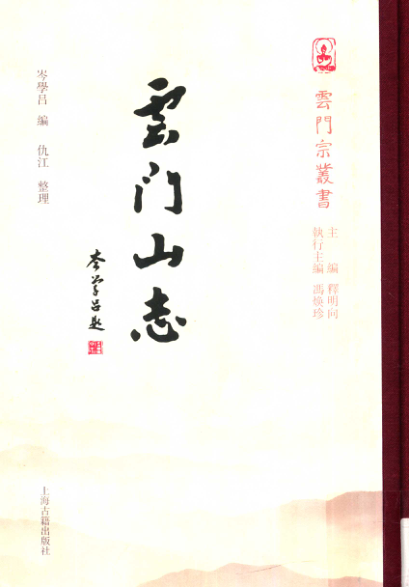 雲門宗叢書
主編 釋明向
執行主編 馮煥珍
雲门山志
岑学呂题
岑學呂 編 仇江 整理
上海古籍出版社